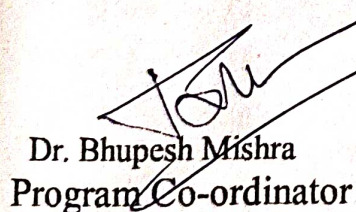 Dr. Bhupesh Mishra
Program Co-ordinator